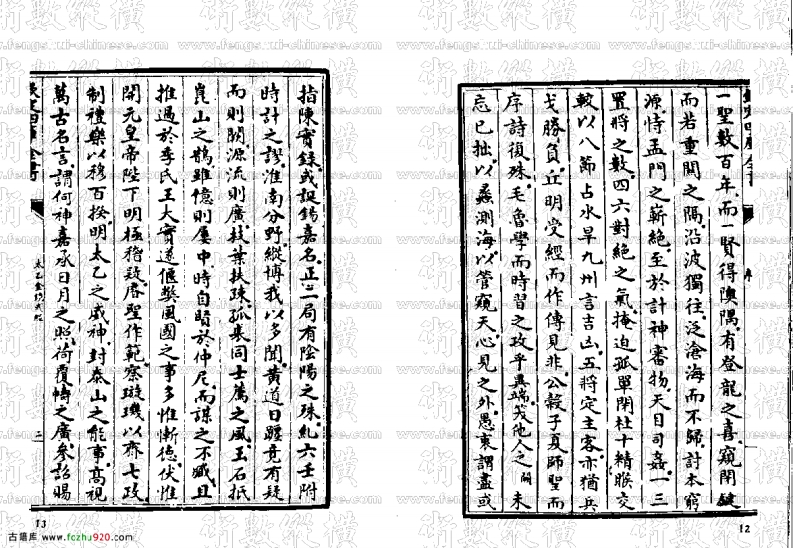 一聖數百年而一賢得隩隅有登龍之喜窺閉鍵
而若重關之隔沿波獨往泛滄海而不歸討本窮
源恃孟門之嶄絶至於計神審物天目司姦一三
置將之數四六對絶之氣掩迫孤單閉杜十精睺交
較以八節占水旱九州言吉凶五將定主客亦猶兵
戈勝負丘明受經而作傳見非公穀子夏師聖而
序詩復殊毛魯學而時習之攻乎異端茂他人之 未
忘已拙以蠡測海以管窺天心見之外愚衷謂盡或
12
指陳實錄或誕錫嘉名正二局有陰陽之殊紀六壬附
時計之謬淮南分野縱博我以多聞黄道日躔竟有疑
而則闕源流則廣枝葉扶疎孤裘同士蔿之風玉石抵
崑山之鵲雖億則屢中時自賢於仲尼而謀之不臧且
推過於李氏王大實遂 風國之事多惟慚德伏惟
開元皇帝陛下明極 啟聖作範察璇璣以齊七政
制禮樂以穆百揆明太乙之威神封泰山之能事高視
萬古名言謂何神嘉承日月之照荷覆幬之廣參詔賜
太乙金鏡式經
二
13
古籍库 www.fczhu920.com
术数纵横
www.fengshui-chinese.com